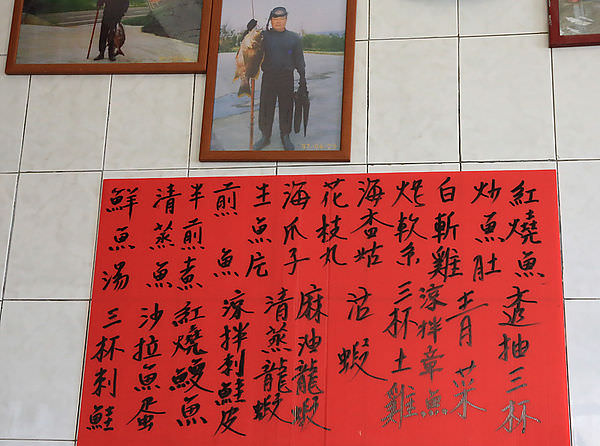 紅燒魚
炒魚肚
白斬雞
炸軟糸
海杏姑
花枝丸
海爪子
土魚片
煎魚
半煎煮
清蒸魚
鮮魚湯
透抽三杯
青菜
涼拌章魚
三杯土雞
沽蝦
麻油龍蝦
清蒸龍蝦
涼拌刺鮭皮
紅燒鰻魚
沙拉魚蛋
三杯刺鮭